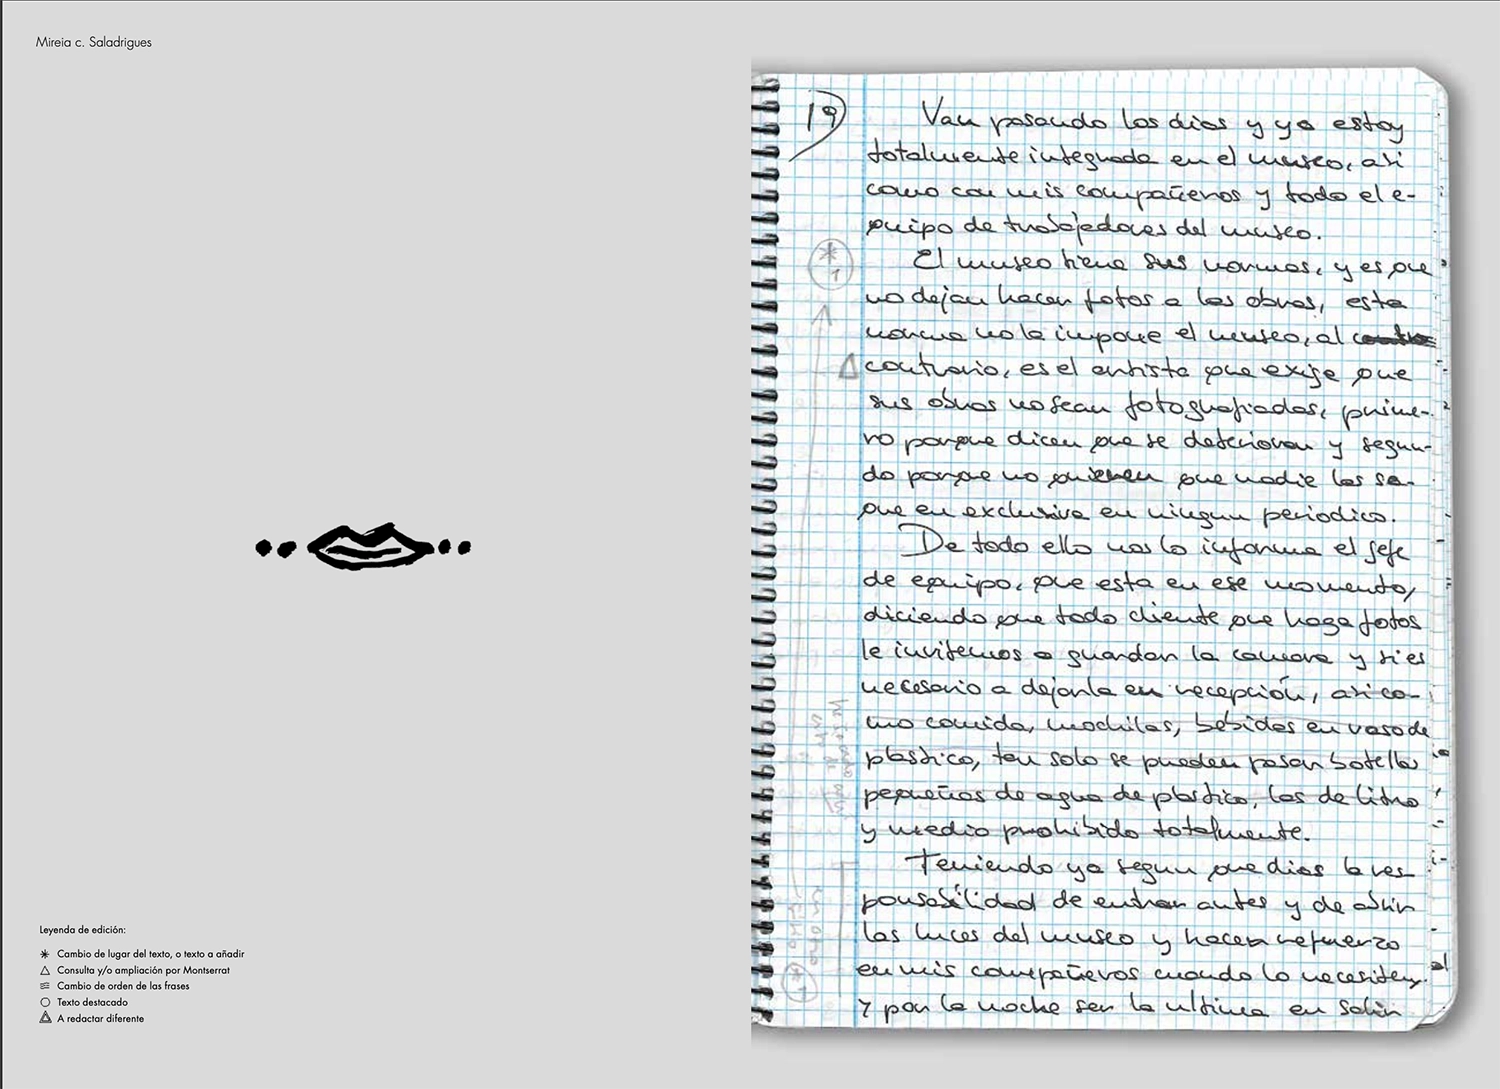 Mireia c. Saladrigues
Leyenda de edición:
Cambio de lugar del texto, o texto a añadir
Consulta y/o ampliación por Montserrat
Cambio de orden de las frases
Texto destacado
A redactar diferente
19
Van pasando los dias y ya estoy
totalmente integrada en el museo, asi
como con mis compañeros y todo el e-
quipo de trabajadores del museo.
* 1
El museo tiene sus normas, y es que
no dejan hacer fotos a las obras, esta
norma no la impone el museo, al
contrario, es el artista que exige que
sus obras no sean fotografiadas, prime-
ro porque dicen que se deterioran y segun-
do porque no quieren que nadie las sa-
que en exclusiva en ningun periodico.
De todo ello nos lo informa el jefe
de equipo, que esta en ese momento,
diciendo que todo cliente que haga fotos
le invitemos a guardar la camara y si es
necesario a dejarla en recepción, asi co-
mo comida, mochilas, bebidas en vaso de
plastico, tan solo se pueden pasar botellas
pequeñas de agua de plastico, las de litro
y medio prohibido totalmente.
Teniendo ya segun que dias la res-
ponsabilidad de entrar antes y de abrir
las luces del museo y hacer refuerzo
en mis compañeros cuando lo necesiten,
y por la noche ser la ultima en salir